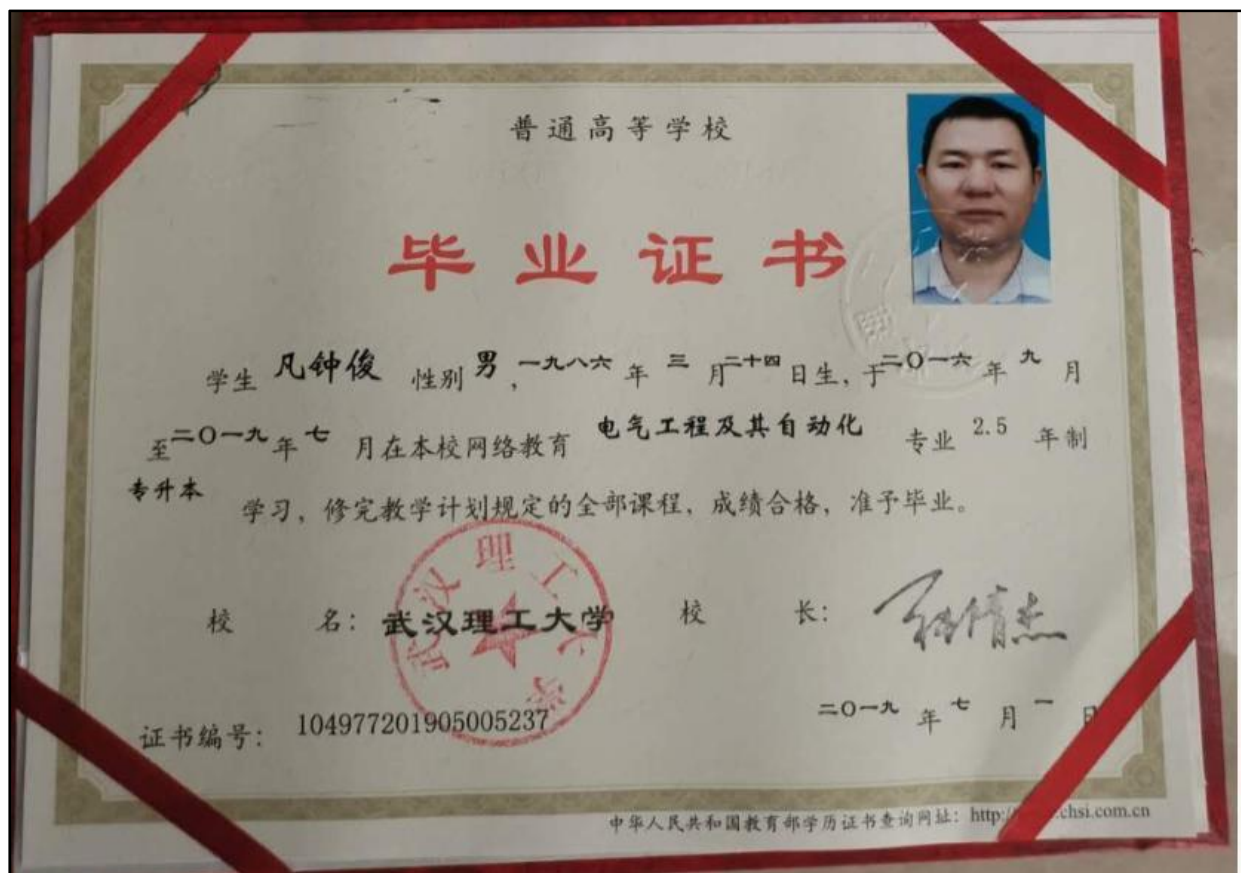 普通高等学校
毕业证书
学生 凡钟俊 性别 男，一九八六 年 三 月 二十四 日生，于 二〇一六 年 九 月
至 二〇一九 年 七 月在本校网络教育 电气工程及其自动化 专业 2.5 年制
专升本 学习，修完教学计划规定的全部课程，成绩合格，准予毕业。
校 名：武汉理工大学 校 长：
武汉理工大学
证书编号：104977201905005237 二〇一九 年 七 月 一 日
中华人民共和国教育部学历证书查询网址：http:// chsi.com.cn